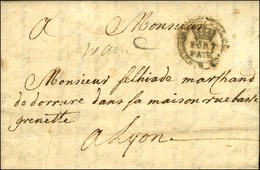 A Monsieur
PORT
PAYÉ
Monsieur felhiade marchand
de dorrure dans sa maison rue basse
grenette
a Lyon